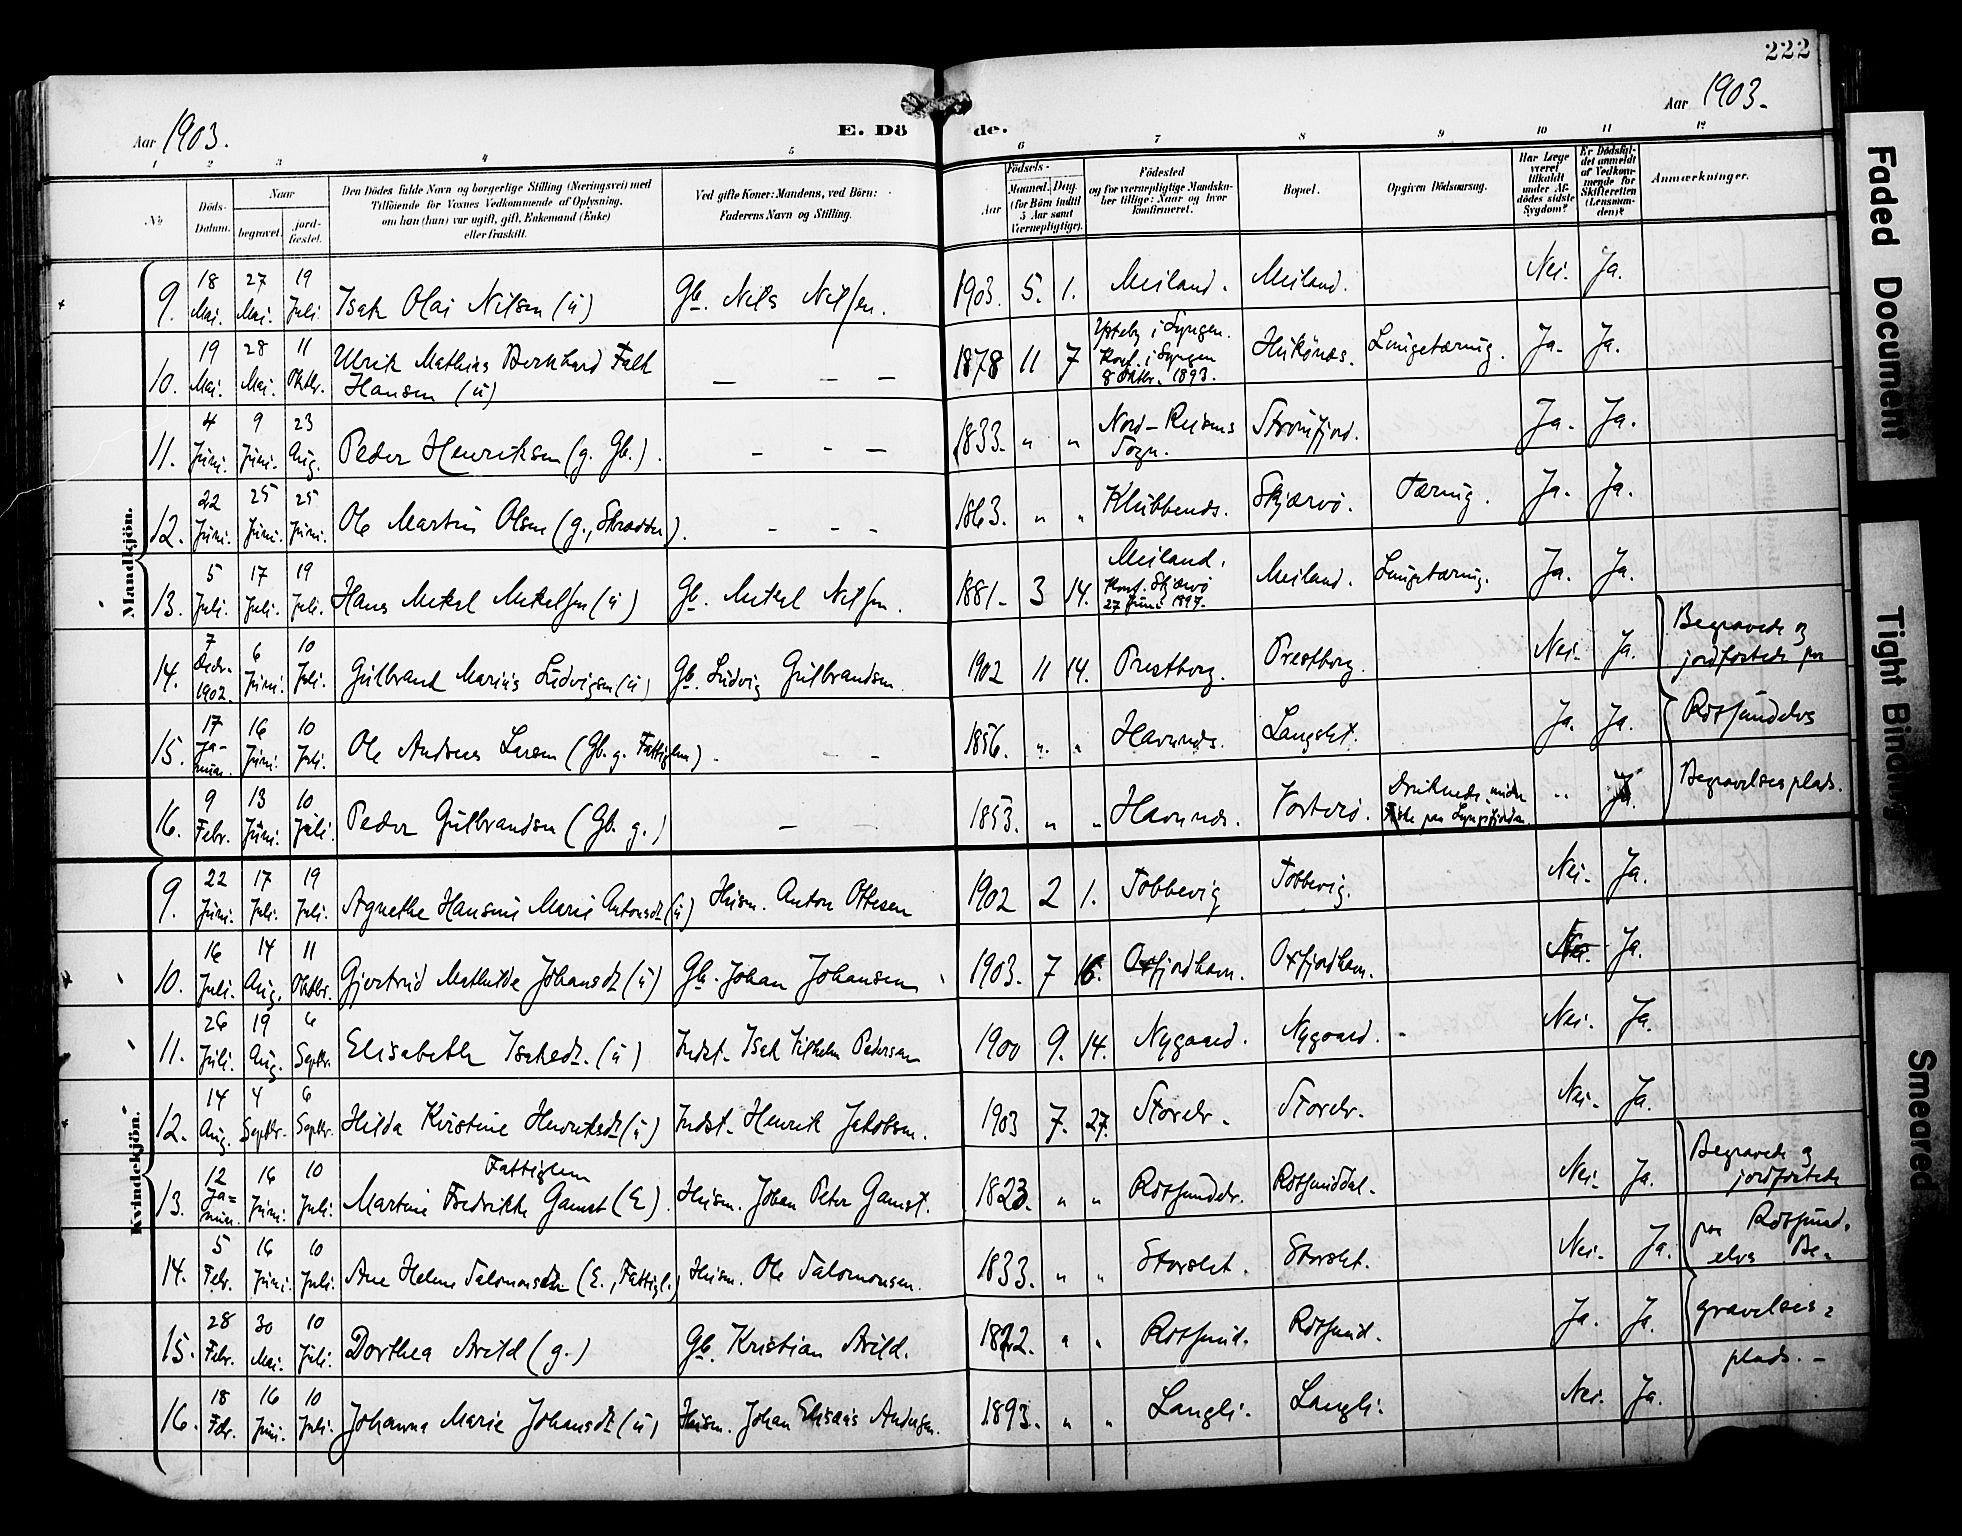 222
Aar 1903.
E. Döde.
Aar 1903.
1 2 3 4 5 6 7 8 9 10 11 12
No
Döds-Datum.
Naar
begravet.
jord-fæstet.
Den Dödes fulde Navn og borgerlige Stilling (Næringsvei) med
Tilföiende for Voxnes Vedkommende af Oplysning,
om han (hun) var ugift, gift, Enkemand (Enke)
eller fraskilt.
Ved gifte Koner: Mandens, ved Börn:
Faderens Navn og Stilling.
Födsels-
Aar
Maaned. Dag.
(for Börn indtil
5 Aar samt
Værnepligtige).
Födested
og for værnepligtige Mandska-
ber tillige: Naar og hvor
konfirmeret.
Bopæl.
Opgiven Dödsaarsag.
Har Læge
været
tilkaldt
under Af-
dödes sidste
Sygdom?
Er Dödsfal-
det anmeldt
af Vedkom-
mende for
Skifteretten
(Lensman-
den)?
Anmærkninger.
Mandkjön.
9. 18 Mai. 27 Mai. 19 Juli. Isak Olai Nilsen (u) Gb. Nils Nilsen. 1903. 5. 1. Meiland. Meiland. Nei. Ja.
10. 19 Mai. 28 Mai. 11 Oktbr. Ulrik Mathias Bernhard Falk
Hansen (u) — — — 1878 11 7 i Lyngen.
Konf. i Lyngen
8 Oktbr. 1893. Lungetæring. Ja. Ja.
11. 4 Juni. 9 Juni. 23 Aug. Peder Henriksen (g. Gb.). — — — 1833. " " Nord-Reisens
Sogn. Straumfjord. Ja. Ja.
12. 22 Juni. 25 Juni. 25 Juni. Ole Martin Olsen (g., Skrædder). — — — 1863. " " Klubbenes. Skjærvö. Tæring. Ja. Ja.
13. 5 Juli. 17 Juli. 19 Juli. Hans Mikal Mikalsen (u) Gb. Mikal Nilsen. 1881. 3 14. Meiland.
Konf. Skjærvö
27 Juni 1897. Meiland. Lungetæring. Ja. Ja.
14. 7 Decbr. 1902. 6 Juni. 10 Juli. Gulbrand Marius Ludvigsen (u) Gb. Ludvig Gulbrandsen. 1902 11 14. Prestborg. Prestborg. Nei. Ja. Begravede og
jordfæstede paa
15. 17 Januar. 16 Juni. 10 Juli. Ole Andreas Larsen (Gb. g. Fattiglem). — — 1856. " " Havnnes. Langslet. Ja. Ja. Rotsundelvs
16. 9 Febr. 13 Juni. 10 Juli. Peder Gulbrandsen (Gb. g.) — — 1853. " " Havnnes. Vorterö. Druknede under
Fiske paa Lyngsfjorden. " Ja. Begravelsesplads.
Kvindekjön.
9. 22 Juni. 17 Juli. 19 Juli. Agnethe Hansine Marie Antonsdt. (u) Husm. Anton Ottesen 1902 2 1. Tobbevig Tobbevig. Nei. Ja.
10. 16 Juli. 14 Aug. 11 Oktbr. Gjertrud Mathilde Johansdt. (u) Gb. Johan Johansen 1903. 7 16. Oxfjordhavn. Oxfjordhavn. Nei. Ja.
11. 26 Juli. 19 Aug. 6 Septbr. Elisabeth Isaksdt. (u) Indst. Isak Vilhelm Pedersen 1900 9. 14. Nygaard. Nygaard. - Nei. Ja.
12. 14 Aug. 4 Septbr. 6 Septbr. Hilda Kristine Henriksdt. (u) Indst. Henrik Jakobsen. 1903 7. 27. Storelv. Storelv. Nei. Ja.
13. 12 Januar. 16 Juni. 10 Juli. Fattiglem
Martine Fredrikke Gamst (E). Husm. Johan Peter Gamst. 1823. " " Rotsundelv. Rotsunddal. Nei. Ja. Begravede og
jordfæstede
14. 5 Febr. 16 Juni. 10 Juli. Ane Helene Salomonsdt. (E., Fattigl.) Husm. Ole Salomonsen. 1833. " " Storslet. Storslet. Nei. Ja. paa Rotsund-
elvs Be-
15. 28 Febr. 30 Mai. 10 Juli. Dorthea Arild (g.) Gb. Kristian Arild. 1822. " " Rotsund. Rotsund. Ja. Ja. gravelses-
plads. -
16. 18 Febr. 16 Juni. 10 Juli. Johanna Marie Johansdt. (u) Husm. Johan Elisæus Andersen. 1893. " " Langli. Langli. Nei. Ja.
Faded Document
Tight Binding
Smeared